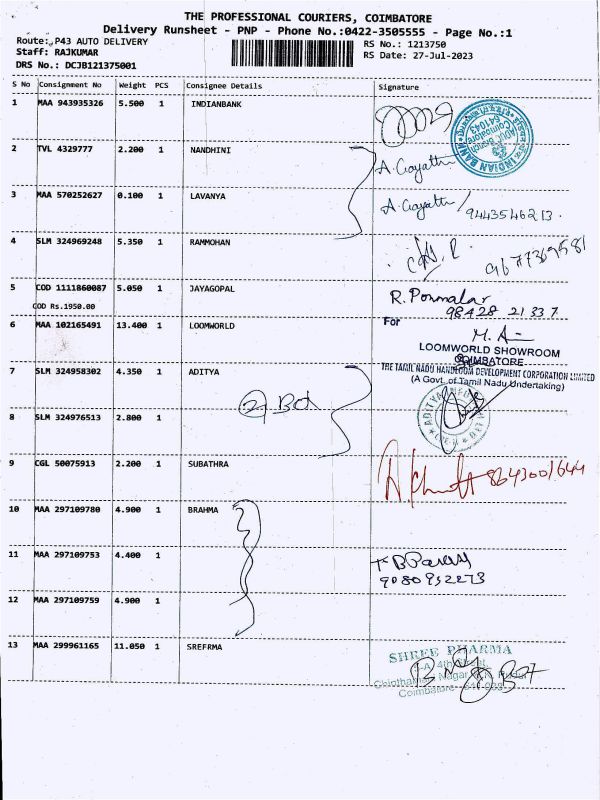 THE PROFESSIONAL COURIERS, COIMBATORE
Delivery Runsheet - PNP - Phone No.:0422-3505555 - Page No.:1
Route: P43 AUTO DELIVERY
RS No.: 1213750
Staff: RAJKUMAR
RS Date: 27-Jul-2023
DRS No.: DCJB121375001
S No Consignment No Weight PCS Consignee Details Signature
1 MAA 943935326 5.500 1 INDIANBANK
INDIAN BANK Coimbatore 641043
2 TVL 4329777 2.200 1 NANDHINI A. Gayathri
3 MAA 570252627 0.100 1 LAVANYA A. Gayathri / 9443546213.
4 SLM 324969248 5.350 1 RAMMOHAN 9677369581
5 COD 1111860087 5.050 1 JAYAGOPAL R. Ponmalar
COD Rs.1950.00 98428 21337
6 MAA 102165491 13.400 1 LOOMWORLD For
LOOMWORLD SHOWROOM
COIMBATORE
THE TAMIL NADU HANDLOOM DEVELOPMENT CORPORATION LIMITED
(A Govt. of Tamil Nadu Undertaking)
7 SLM 324958302 4.350 1 ADITYA
2 Box
ADITYA
8 SLM 324976513 2.800 1
9 CGL 50075913 2.200 1 SUBATHRA
10 MAA 297109780 4.900 1 BRAHMA
11 MAA 297109753 4.400 1
9080952273
12 MAA 297109759 4.900 1
13 MAA 299961165 11.050 1 SREFRMA
SHREE PHARMA
Coimbatore